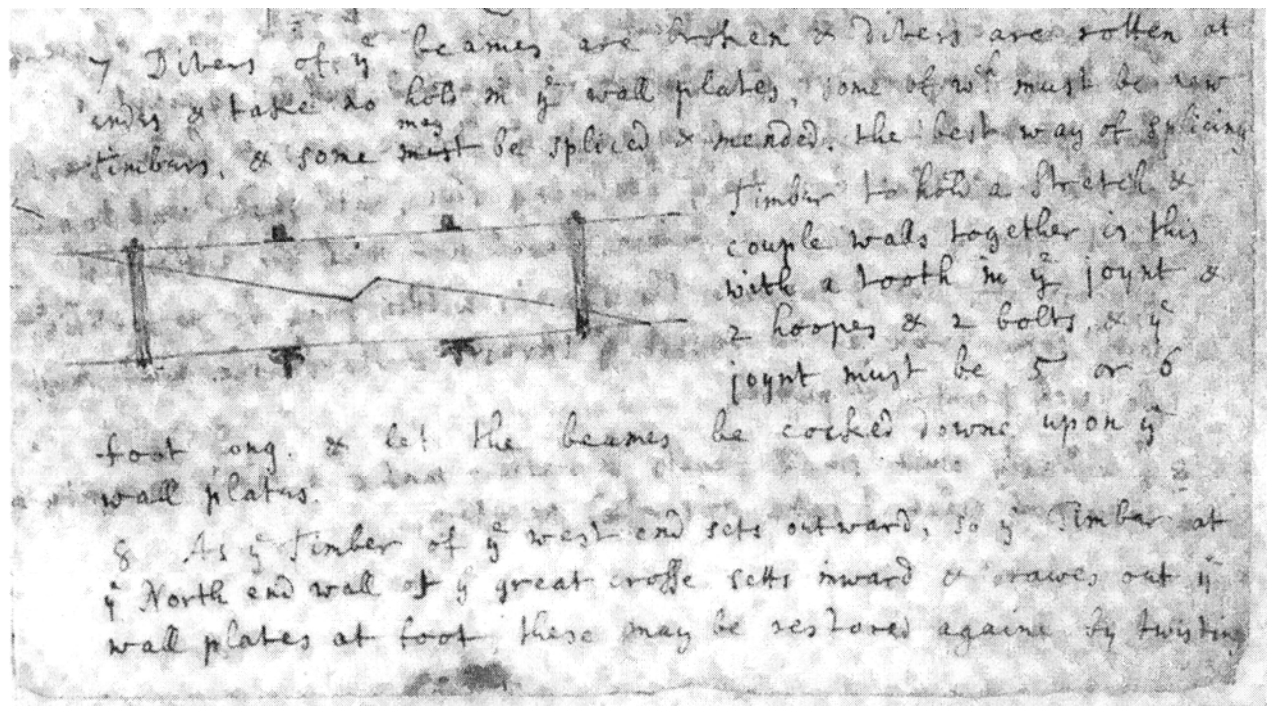 7 Divers of yͤ beames are broken & divers are rotten at
endes & take no hold in yͤ wall plates, some of wᶜʰ must be new
may
timbars, & some must be spliced & mended. the best way of splicing
Timber to hold a stretch &
couple walls together is this
with a tooth in yͤ joynt &
2 hoopes & 2 bolts, & yͤ
joynt must be 5 or 6
foot ong. & let the beames be cocked downe upon yͤ
wall plates.
8 As yͤ Timber of yͤ west end sets outward, so yͤ Timbar at
yͤ North end wall of yͤ great crosse setts inward & drawes out yͤ
wall plates at foot, these may be restored againe by twisting